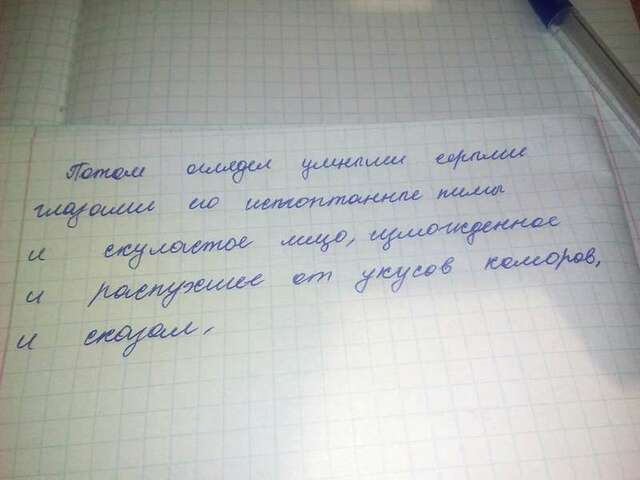 Потом оглядел умными серыми
глазами его истоптанные пимы
и скуластое лицо, измождённое
и распухшее от укусов комаров,
и сказал,